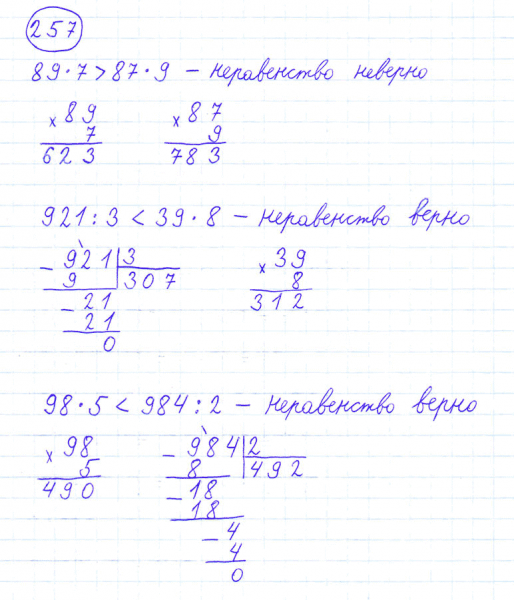 257
89·7>87·9 – неравенство неверно
× 89 × 87
7 9
623 783
921:3 < 39·8 – неравенство верно
– 921 3 × 39
9 307 8
– 21 312
21
0
98·5 < 984:2 – неравенство верно
× 98 – 984 2
5 8 492
490 – 18
18
– 4
4
0